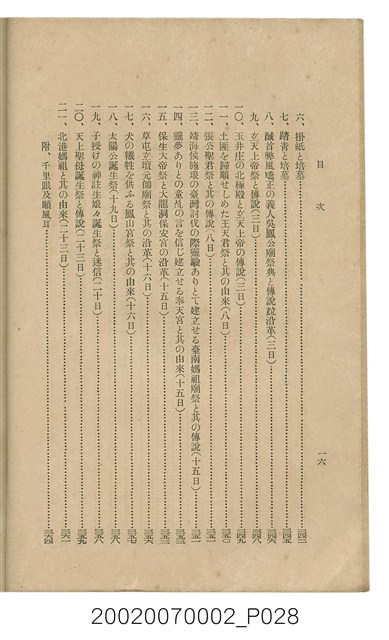 目次
一六
六、掛紙と培墓
七、踏青と培墓
八、馘首弊風矯正の義人吳鳳公廟祭典と傳說竝沿革(三日)
九、玄天上帝祭と傳說(三日)
一〇、玉井庄の北極殿と玄天上帝の傳說(三日)
一一、土匪を歸順せしめた玉天君祭と其の由來(八日)
一二、張公聖君祭と其の傳說(八日)
一三、靖海侯施琅の臺灣討伐の際靈驗ありとて建立せる臺南媽祖廟祭と其の傳說(十五日)
一四、靈夢ありとの童乩の言を信じ建立せる奉天宮と其の由來(十五日)
一五、保生大帝祭と大龍洞保安宮の沿革(十五日)
一六、草屯立壇元帥廟祭と其の沿革(十六日)
一七、犬の犧牲を供ふる鳳山宮祭と其の由來(十六日)
一八、太陽公誕生祭(十九日)
一九、子授けの神註生娘々誕生祭と迷信(二十日)
二〇、天上聖母誕生祭と傳說(二十三日)
二一、北港媽祖と其の由來(二十三日)
附、千里眼及順風耳
20020070002_P028